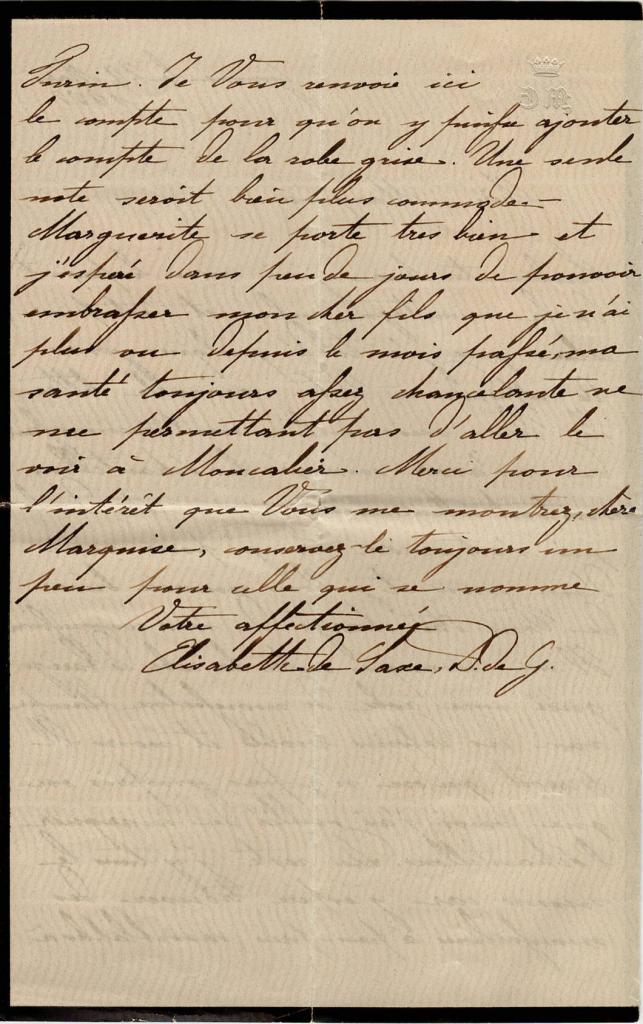 Turin. Je Vous renvoie ici
le compte pour qu'on y puisse ajouter
le compte de la robe grise. Une seule
note seroit bien plus commode.—
Marguerite se porte tres bien et
j'espère dans peu de jours de pouvoir
embrasser mon cher fils que je n'ai
plus vu depuis le mois passé, ma
santé toujours assez chancelante ne
me permettant pas d'aller le
voir à Moncalier. Merci pour
l'intérêt que Vous me montrez, chère
Marquise, conservez-le toujours un
peu pour celle qui se nomme
Votre affectionnée
Elisabeth de Saxe, D. de G.